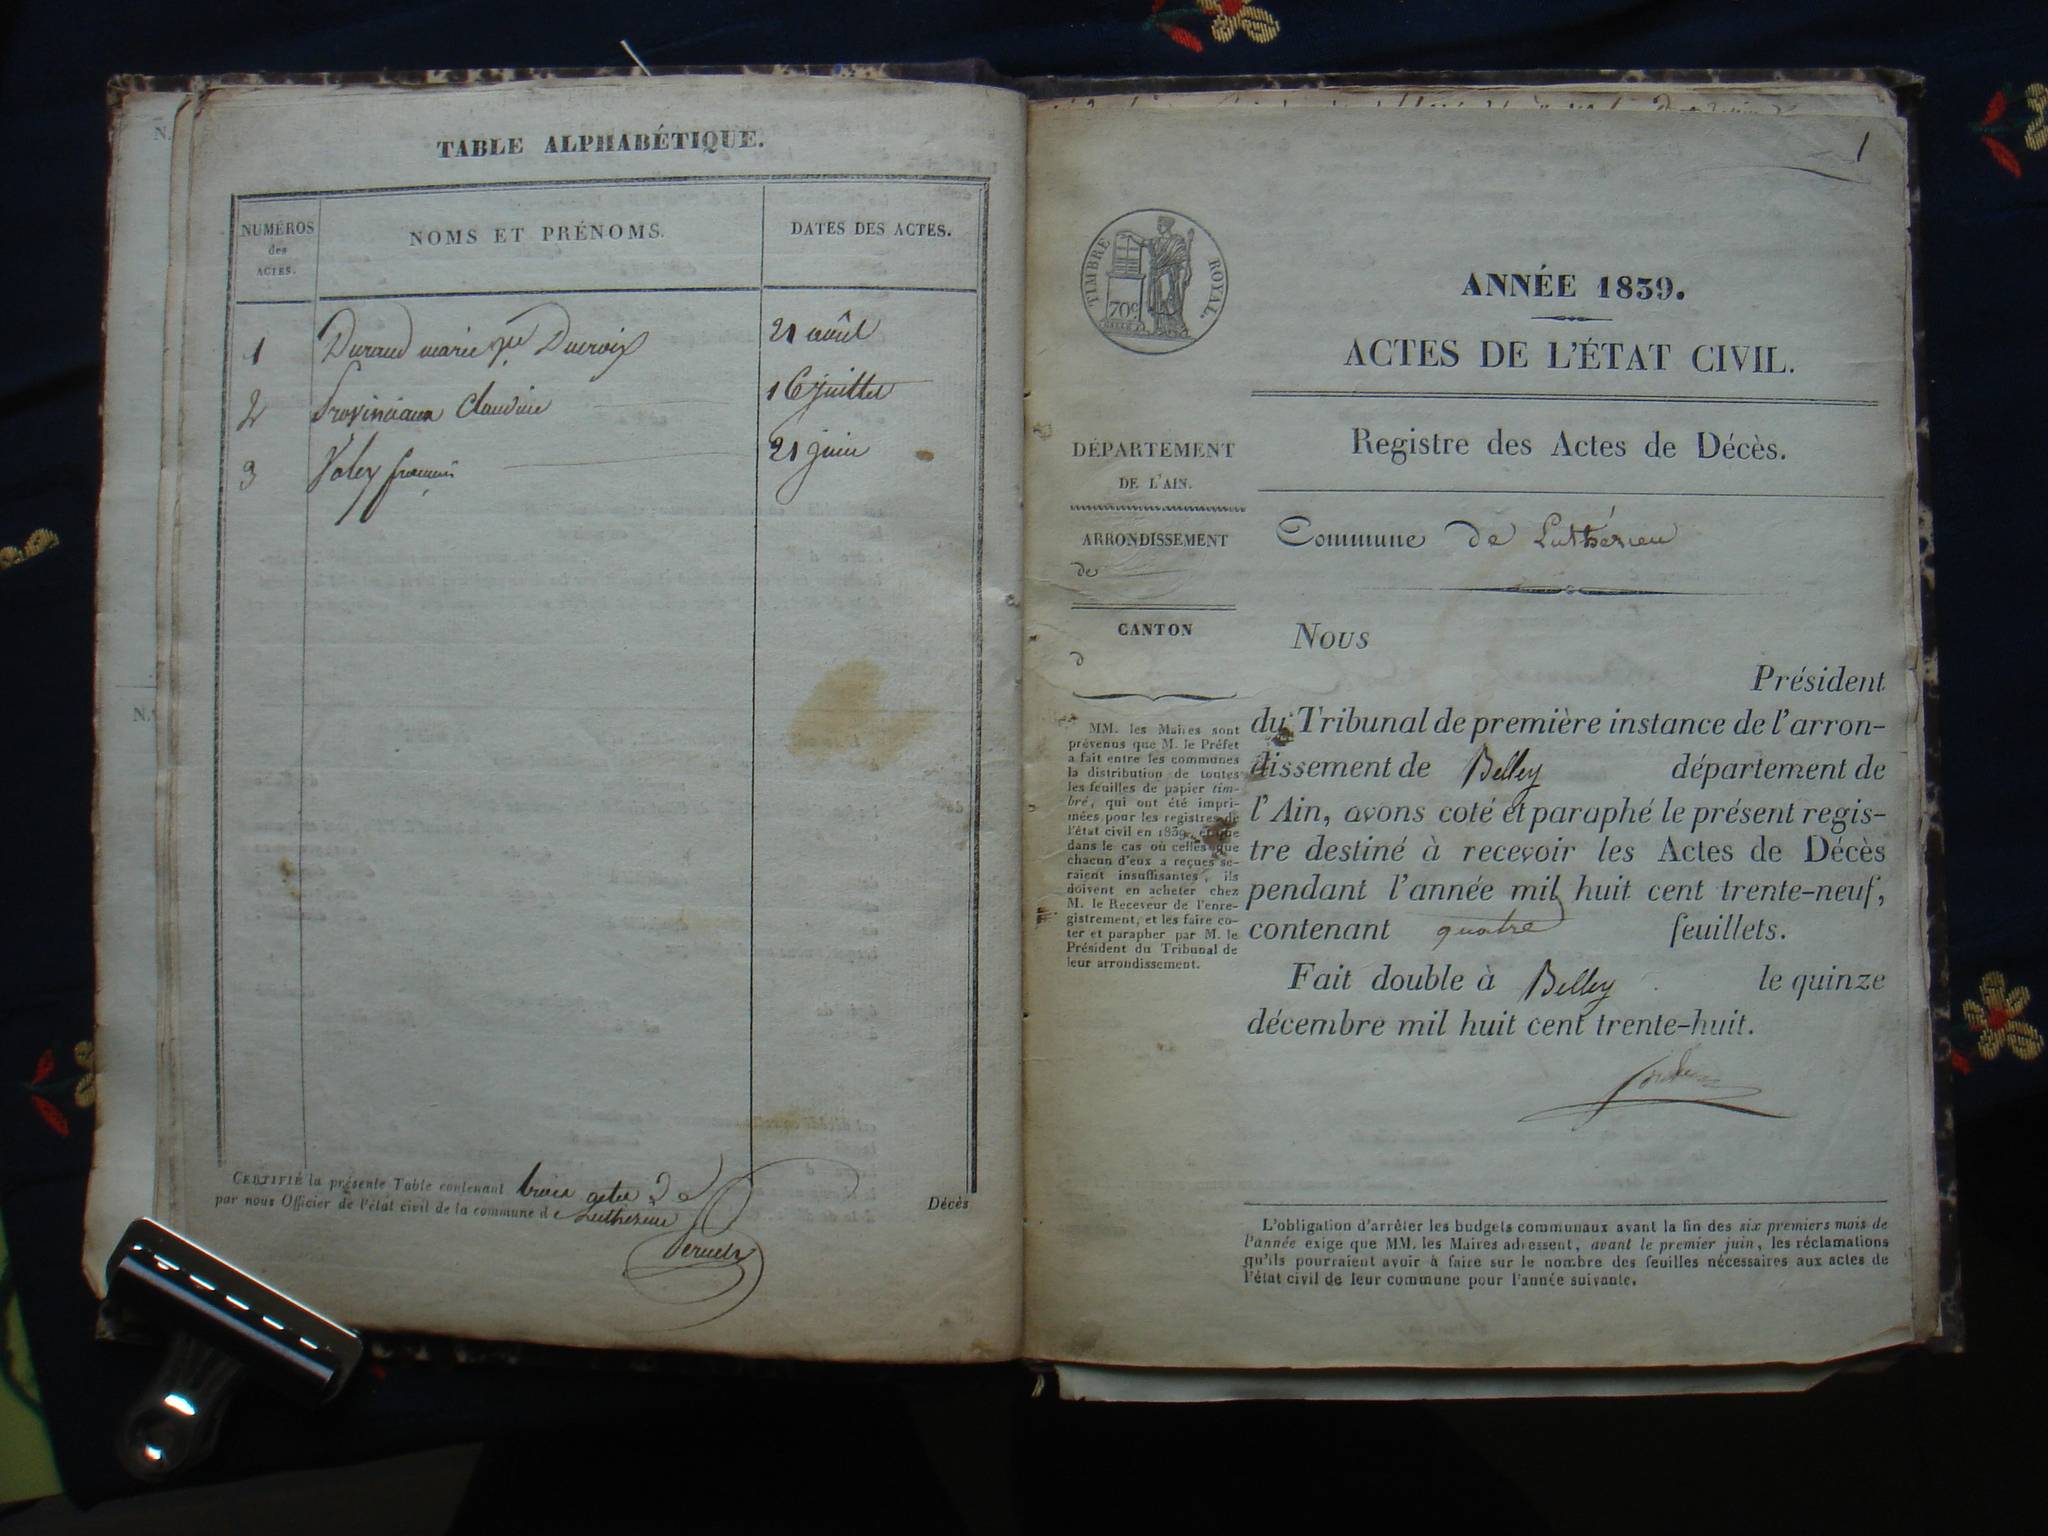 TABLE ALPHABÉTIQUE.
NUMÉROS
des
ACTES.
NOMS ET PRÉNOMS.
DATES DES ACTES.
1 Durand marie Ducroix 21 août
2 Provinciaux Claudine 16 juillet
3 Valey 21 juin
CERTIFIÉ la présente Table contenant trois actes de Décès
par nous Officier de l'état civil de la commune de Luthézieu
N.
N.
1
TIMBRE ROYAL.
70c
ANNÉE 1839.
ACTES DE L'ÉTAT CIVIL.
Registre des Actes de Décès.
DÉPARTEMENT
DE L'AIN.
ARRONDISSEMENT
de
CANTON
d
Commune de Luthézieu
MM. les Maires sont
prévenus que M. le Préfet
a fait entre les communes
la distribution de toutes
les feuilles de papier tim-
bré, qui ont été impri-
mées pour les registres de
l'état civil en 1839, et que
dans le cas où celles que
chacun d'eux a reçues se-
raient insuffisantes, ils
doivent en acheter chez
M. le Receveur de l'enre-
gistrement, et les faire co-
ter et parapher par M. le
Président du Tribunal de
leur arrondissement.
Nous
Président
du Tribunal de première instance de l'arron-
dissement de Belley département de
l'Ain, avons coté et paraphé le présent regis-
tre destiné à recevoir les Actes de Décès
pendant l'année mil huit cent trente-neuf,
contenant quatre feuillets.
Fait double à Belley le quinze
décembre mil huit cent trente-huit.
L'obligation d'arrêter les budgets communaux avant la fin des six premiers mois de
l'année exige que MM. les Maires adressent, avant le premier juin, les réclamations
qu'ils pourraient avoir à faire sur le nombre des feuilles nécessaires aux actes de
l'état civil de leur commune pour l'année suivante.